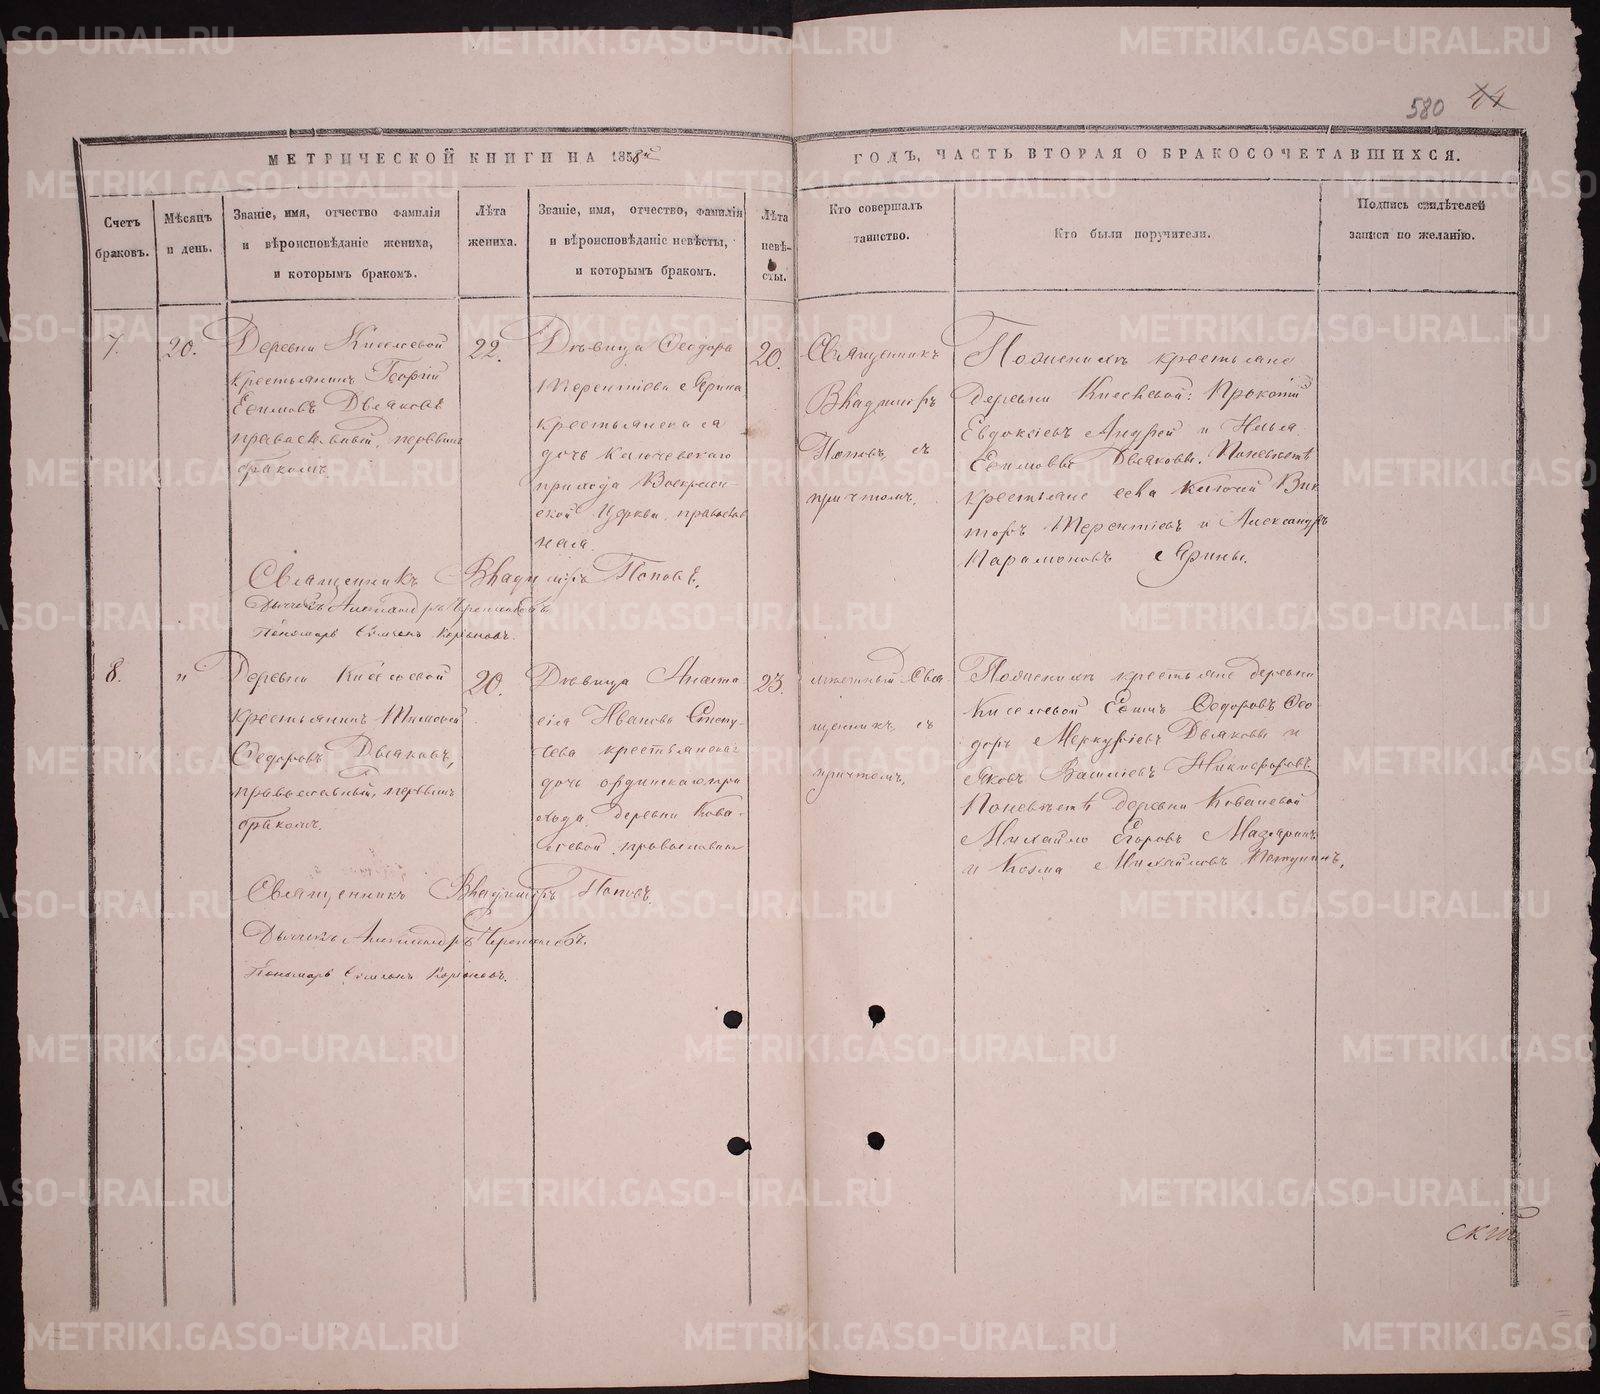 580 44
МЕТРИЧЕСКОЙ КНИГИ НА 1858й
ГОДЪ, ЧАСТЬ ВТОРАЯ О БРАКОСОЧЕТАВШИХСЯ.
Счетъ браковъ.
Мѣсяцъ и день.
Званіе, имя, отчество фамилія
и вѣроисповѣданіе жениха,
и которымъ бракомъ.
Лѣта жениха.
Званіе, имя, отчество, фамилія
и вѣроисповѣданіе невѣсты,
и которымъ бракомъ.
Лѣта невѣ-
сты.
Кто совершалъ
таинство.
Кто были поручители.
Подпись свидѣтелей
записи по желанію.
7.
20.
Деревни Киселевой
крестьянинъ Георгій
Ефимовъ Дьяковъ
православный, первымъ
бракомъ.
22.
Дѣвица Ѳеодора
Терентіева Ярина
крестьянская
дочь Ключевскаго
прихода Воскресен-
ской Церкви, православ
ная.
20.
Священникъ
Владиміръ
Поповъ, съ
причтомъ.
По женихѣ крестьяне
деревни Киселевой: Прокопій
Евдокіевъ Андрей и Илья
Ефимовы Дьяковы. По невѣстѣ
крестьяне села Ключей Вик
торъ Терентіевъ и Александръ
Парамоновъ Ярины.
Священникъ Владиміръ Поповъ.
Дьячекъ Александръ
Пономарь Симеонъ
8.
"
Деревни Киселевой
крестьянинъ Тимофей
Ѳедоровъ Дьяковъ,
православный, первымъ
бракомъ.
20.
Дѣвица Анаста
сія Иванова
крестьянская
дочь ординскаго при
хода деревни Кова
левой, православная
23.
мѣстный Свя
щенникъ, съ
причтомъ.
По женихѣ крестьяне деревни
Киселевой Ѳедоровъ Ѳео
доръ Меркуріевъ Дьяковы и
Яковъ Василіевъ Никифоровъ.
По невѣстѣ деревни Ковалевой
Михайло Егоровъ
и Козма Михайловъ
Священникъ Владиміръ Поповъ.
Дьячекъ Александръ
Пономарь Симеонъ
скій
METRIKI.GASO-URAL.RU